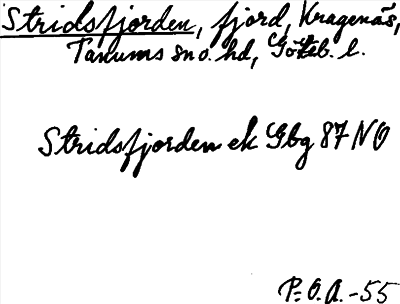 Stridsfjorden, fjord, Kragenäs,
Tanums sn o. hd, Göteb. l.
Stridsfjorden ek Gbg 87 NO
P.O.A. -55